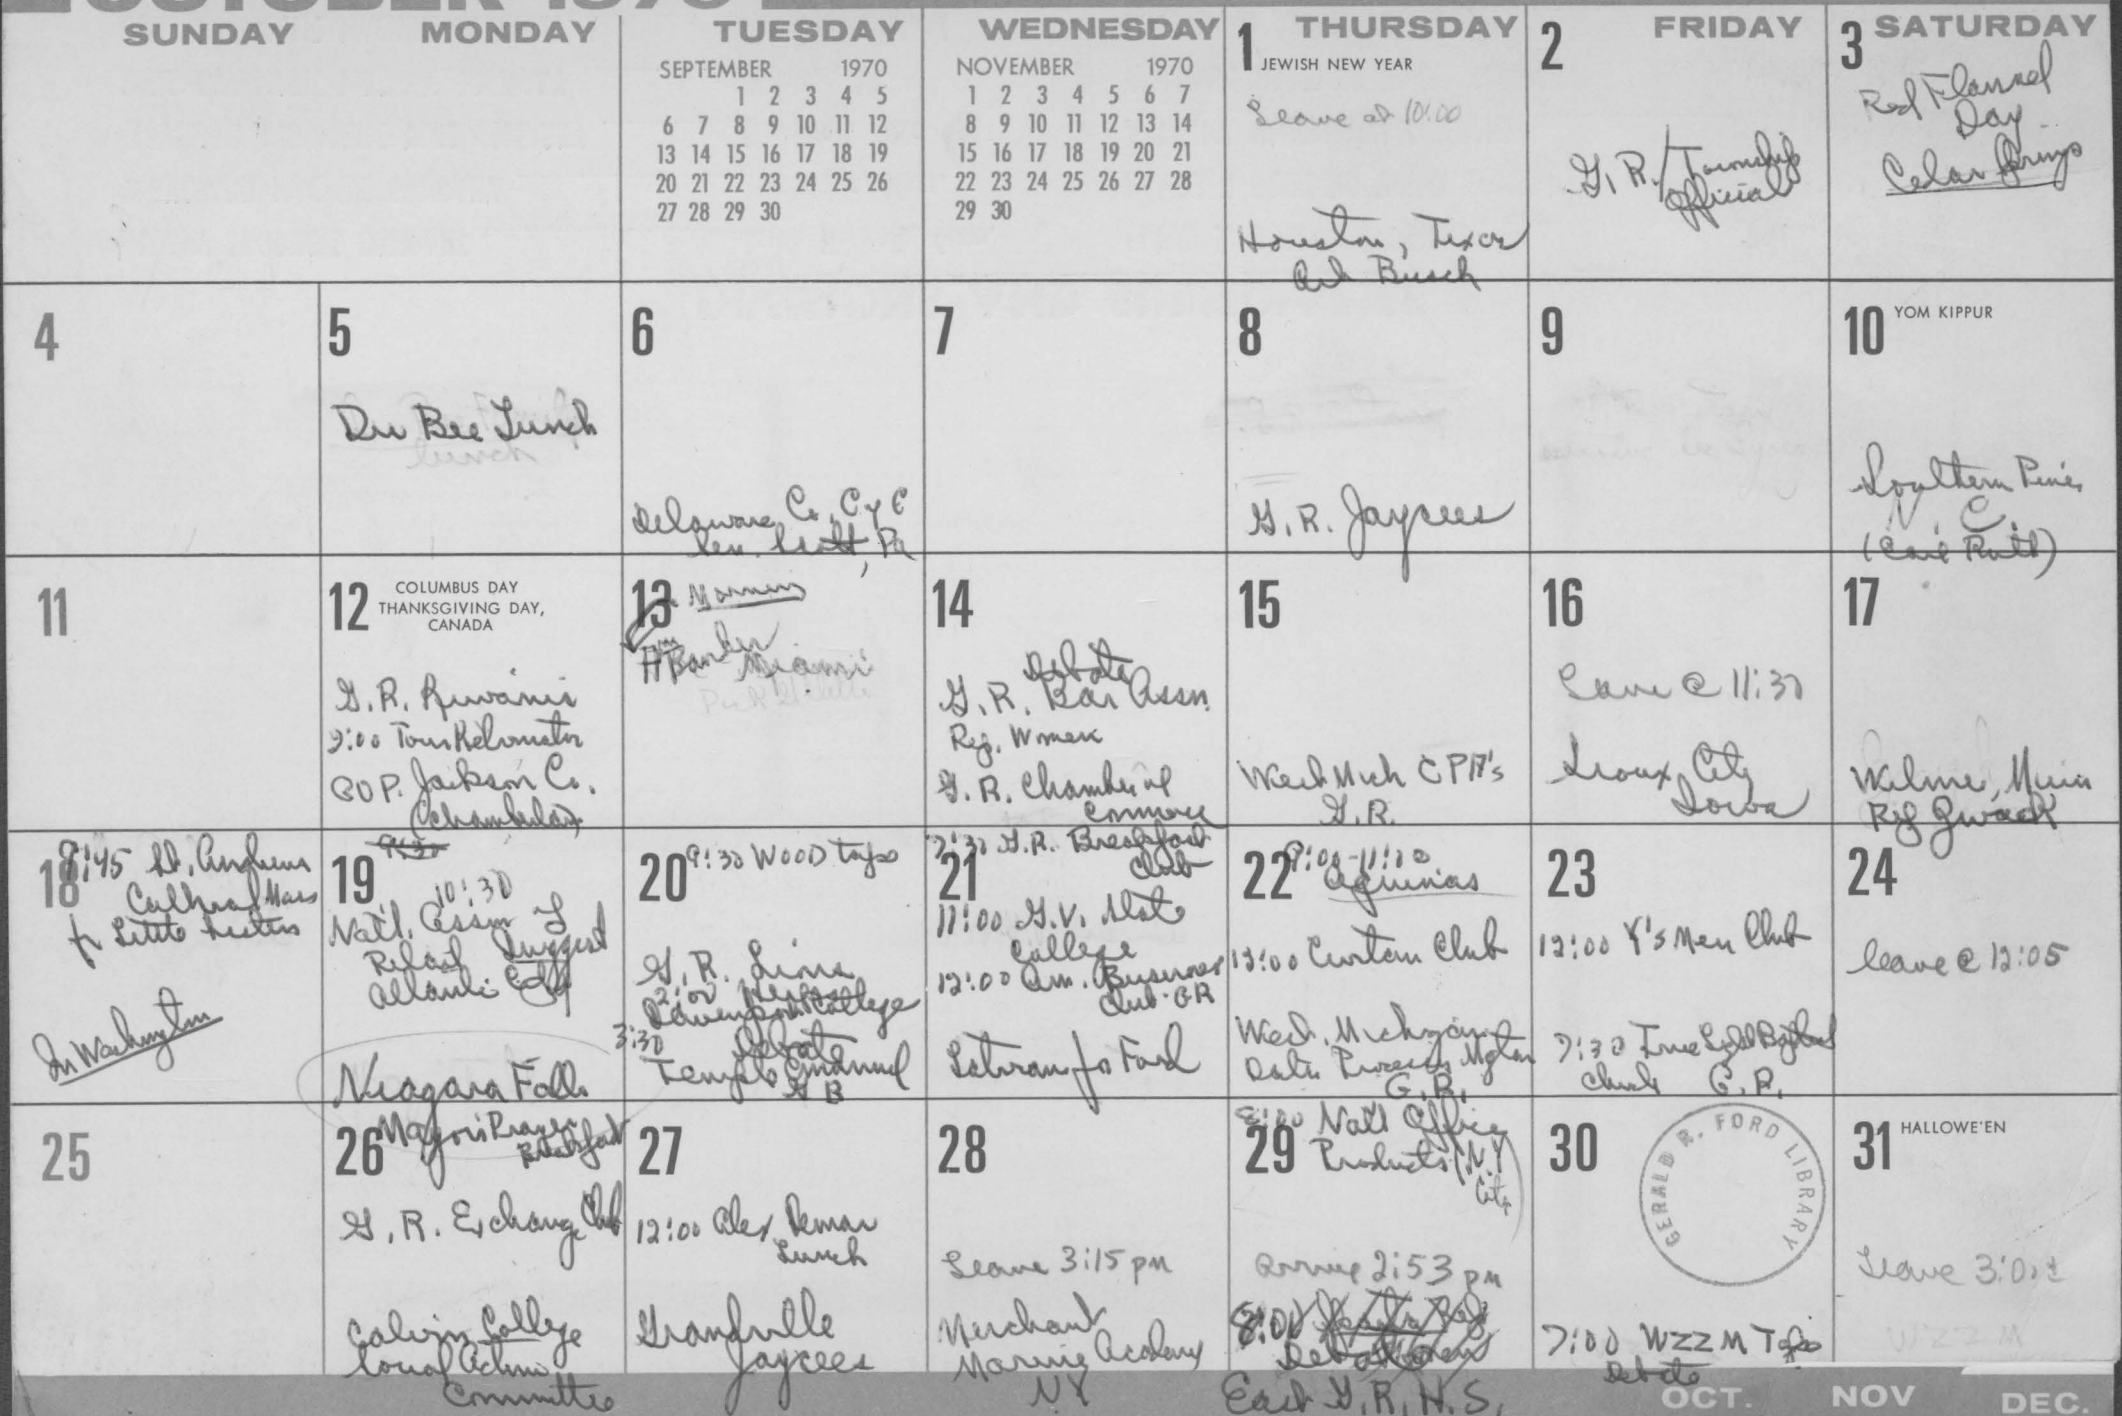 OCTOBER 1970
SUNDAY MONDAY TUESDAY WEDNESDAY THURSDAY FRIDAY SATURDAY
SEPTEMBER 1970
1 2 3 4 5
6 7 8 9 10 11 12
13 14 15 16 17 18 19
20 21 22 23 24 25 26
27 28 29 30
NOVEMBER 1970
1 2 3 4 5 6 7
8 9 10 11 12 13 14
15 16 17 18 19 20 21
22 23 24 25 26 27 28
29 30
1 JEWISH NEW YEAR
Leave at 10:00
Houston, Texas
Busch
2
G.R. / Township
Officials
3
Red Flannel
Day
Cedar Springs
4
5
Du Bee Lunch
lunch
6
Delaware Co.
Sen. Scott, Pa
7
8
G.R. Jaycees
9
10 YOM KIPPUR
Southern Pines
N.C.
(Earl Ruth)
11
12 COLUMBUS DAY
THANKSGIVING DAY,
CANADA
G.R. Kiwanis
Tour Kelvinator
GOP. Jackson Co.
(Chamberlain)
13
Miami
14
Debate
G.R. Bar Assn.
Rep. Women
G.R. Chamber of
Commerce
15
West Mich CPA's
G.R.
16
Leave @ 11:30
Sioux City
Iowa
17
Wilmar, Minn
Rep Zwach
18
8:45 St. Andrews
Cathedral Mass
for Little Sisters
In Washington
19
9:30
10:30
Nat'l. Assn of
Retail Druggist
Atlantic City
Niagara Falls
20
9:30 WOOD Tape
G.R. Lions
2:00
Davenport College
3:30
Debate
Temple Emanuel
GR
21
7:30 G.R. Breakfast
Club
11:00 G.V. State
College
12:00 Am. Business
Club-GR
Lutheran for Ford
22
9:00-11:00
Aquinas
12:00 Curtain Club
West. Michigan
Data Process Mgtm
G.R.
23
12:00 Y's Men Club
7:30 True Light Baptist
Church G.R.
24
leave @ 12:05
25
26
Mayor's Prayer
Breakfast
G.R. Exchange Club
Calvin College
Social Action
Committee
27
12:00 Alex Demar
Lunch
Grandville
Jaycees
28
Leave 3:15 pm
Merchant
Marine Academy
NY
29
8:00 Nat'l Office
Products (N.Y.
City)
Arrive 2:53 pm
8:00
East G.R.H.S.
30
GERALD R. FORD LIBRARY
7:00 WZZM Tape
Debate
31 HALLOWE'EN
Leave
WZZM
OCT. NOV DEC.